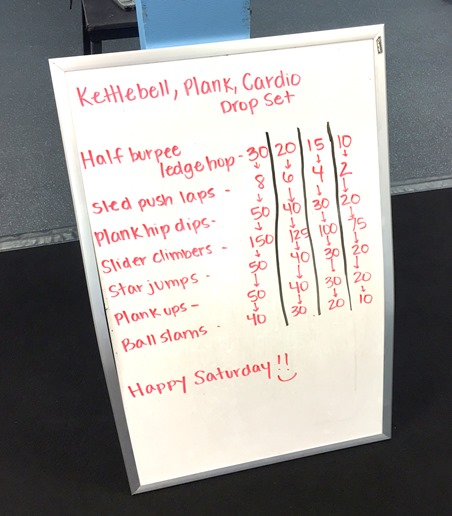 Kettlebell, Plank, Cardio
Drop Set
Half burpee
ledge hop - 30 20 15 10
Sled push laps - 8 6 4 2
Plank hip dips - 50 40 30 20
Slider climbers - 150 125 100 75
Star jumps - 50 40 30 20
Plank ups - 50 40 30 20
Ball slams - 40 30 20 10
Happy Saturday!!